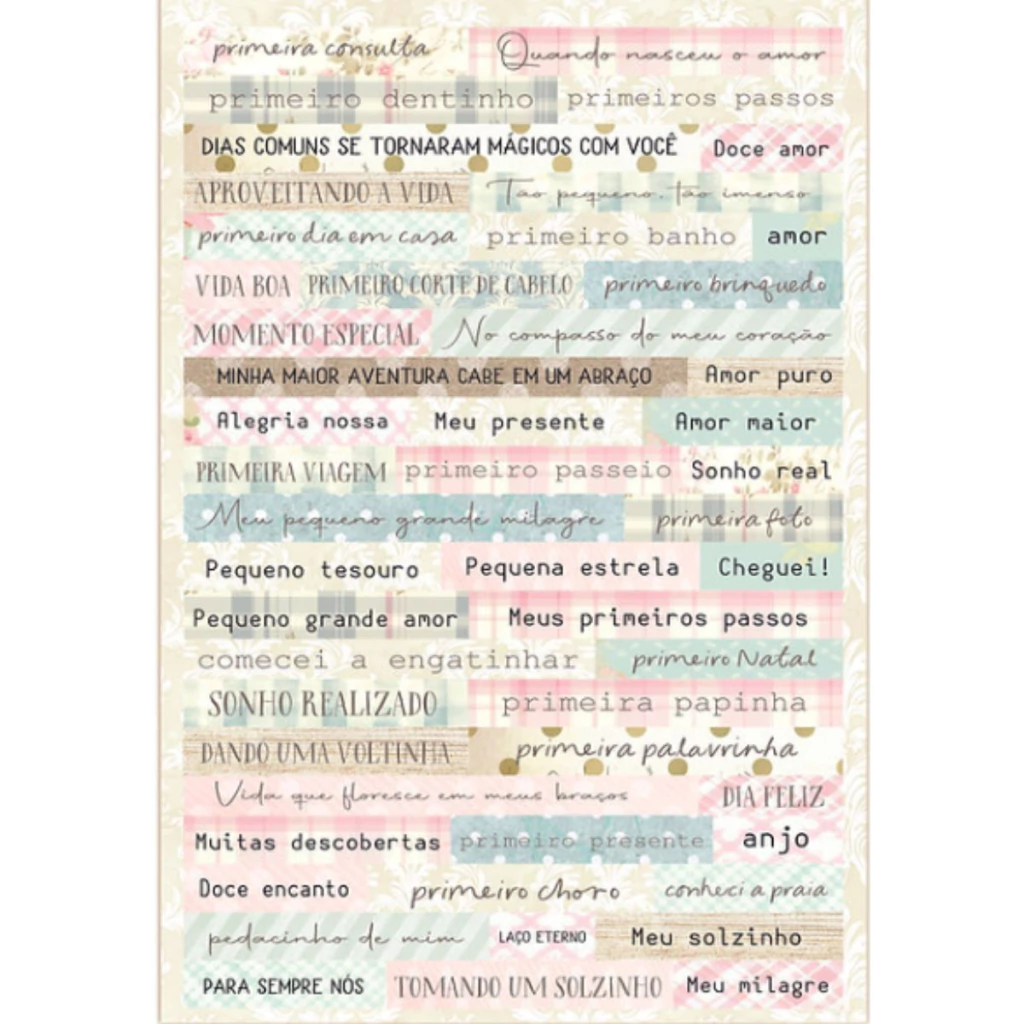 primeira consulta Quando nasceu o amor
primeiro dentinho primeiros passos
DIAS COMUNS SE TORNARAM MÁGICOS COM VOCÊ Doce amor
APROVEITANDO A VIDA Tao pequeno, tão imenso
primeiro dia em casa primeiro banho amor
VIDA BOA PRIMEIRO CORTE DE CABELO primeiro brinquedo
MOMENTO ESPECIAL No compasso do meu coração
MINHA MAIOR AVENTURA CABE EM UM ABRAÇO Amor puro
Alegria nossa Meu presente Amor maior
PRIMEIRA VIAGEM primeiro passeio Sonho real
Meu pequeno grande milagre primeira foto
Pequeno tesouro Pequena estrela Cheguei!
Pequeno grande amor Meus primeiros passos
comecei a engatinhar primeiro Natal
SONHO REALIZADO primeira papinha
DANDO UMA VOLTINHA primeira palavrinha
Vida que floresce em meus braços DIA FELIZ
Muitas descobertas primeiro presente anjo
Doce encanto primeiro choro conheci a praia
pedacinho de mim LAÇO ETERNO Meu solzinho
PARA SEMPRE NÓS TOMANDO UM SOLZINHO Meu milagre